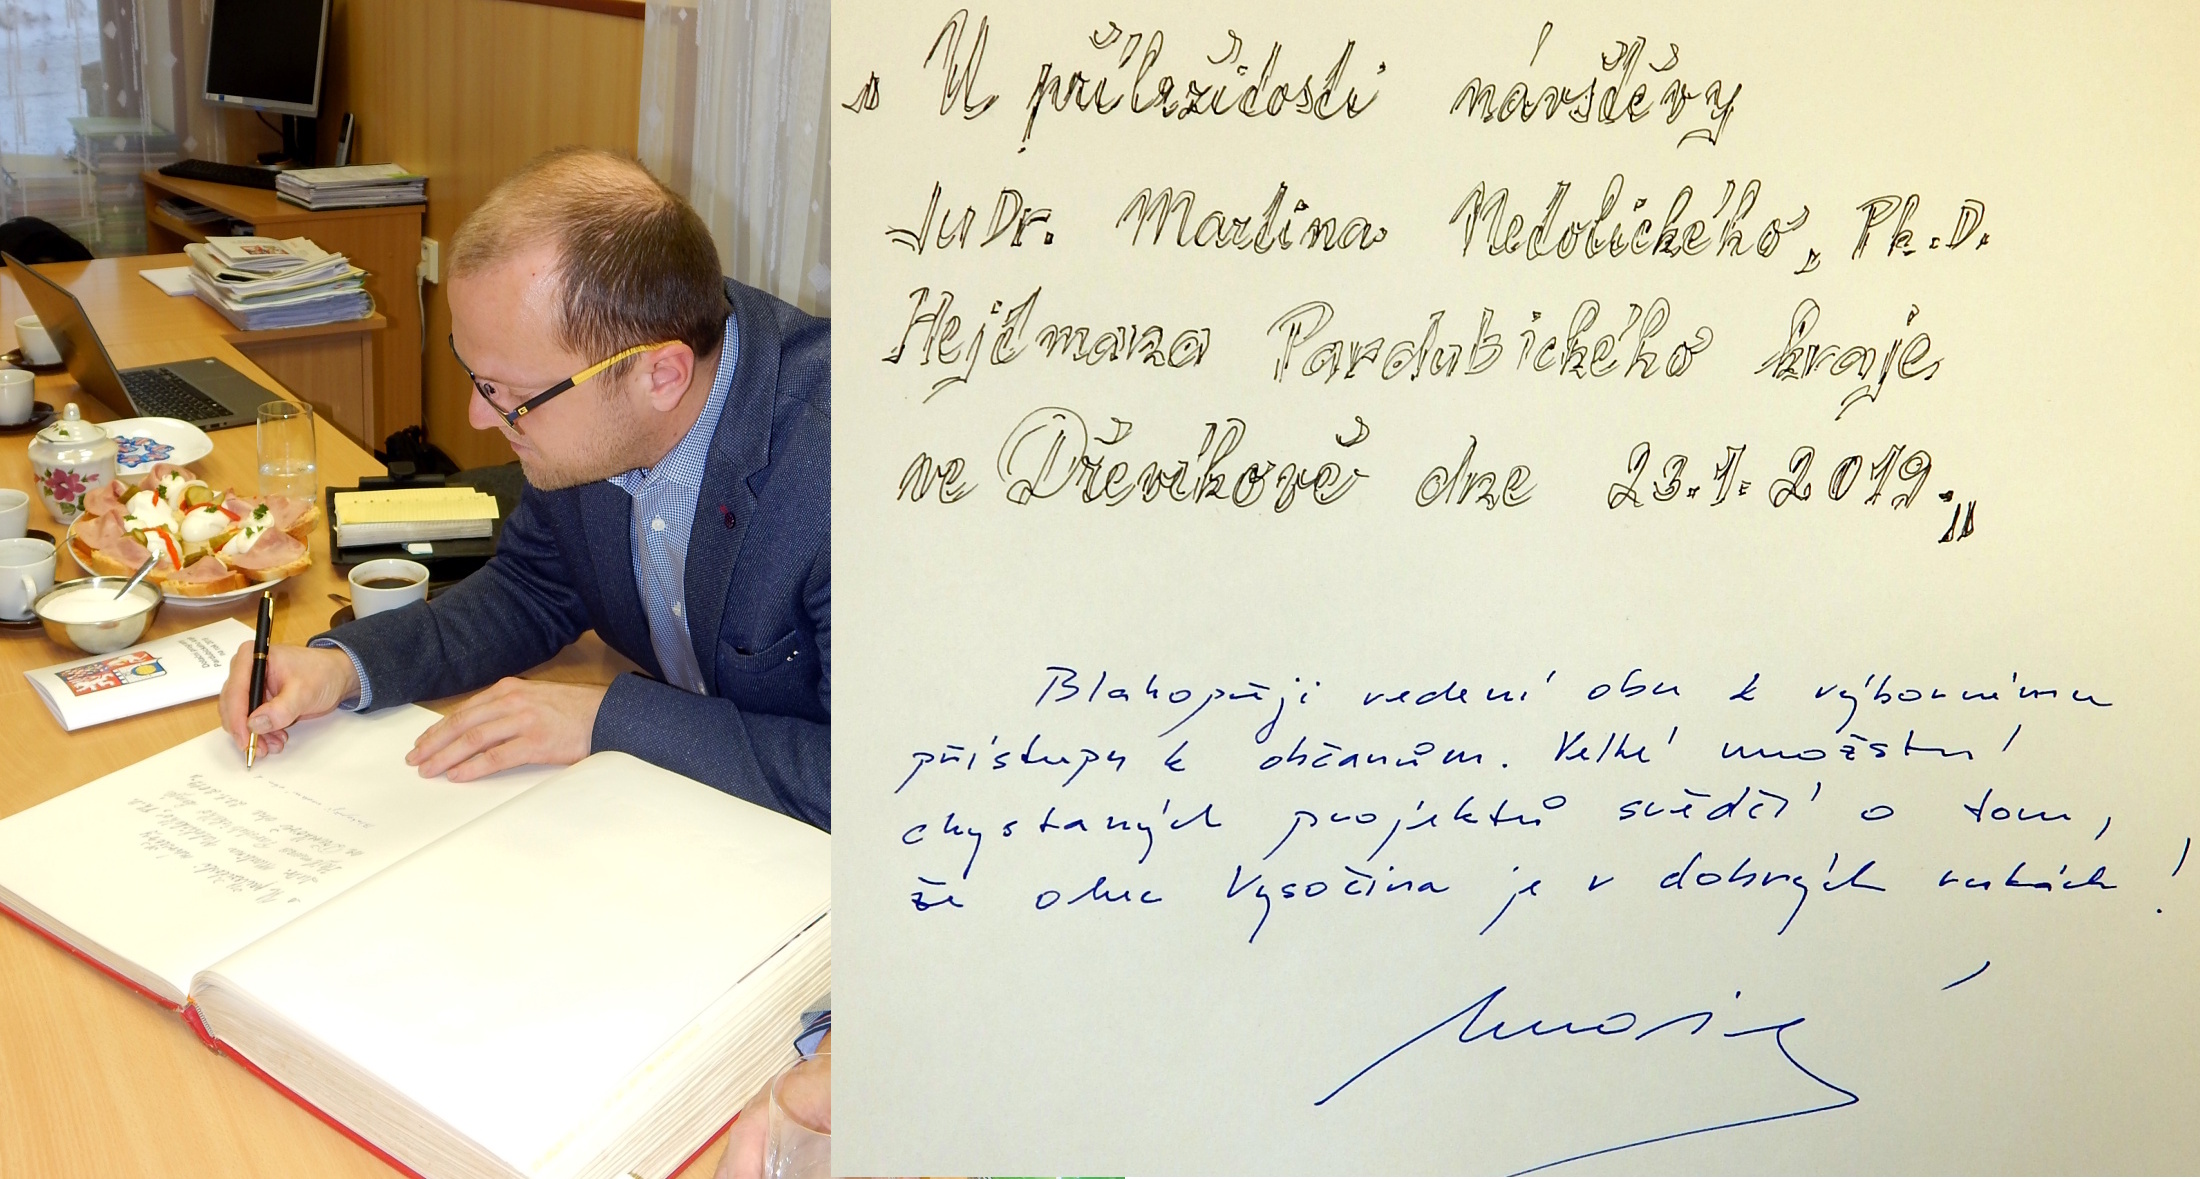 „ U příležitosti návštěvy
JuDr. Martina Netolického, Ph.D.
Hejtmana Pardubického kraje
ve Dřevíkově dne 23.1.2019.“
Blahopřeji vedení obce k výbornému
přístupu k občanům. Velké množství
chystaných projektů svědčí o tom,
že obec Vysočina je v dobrých rukách!